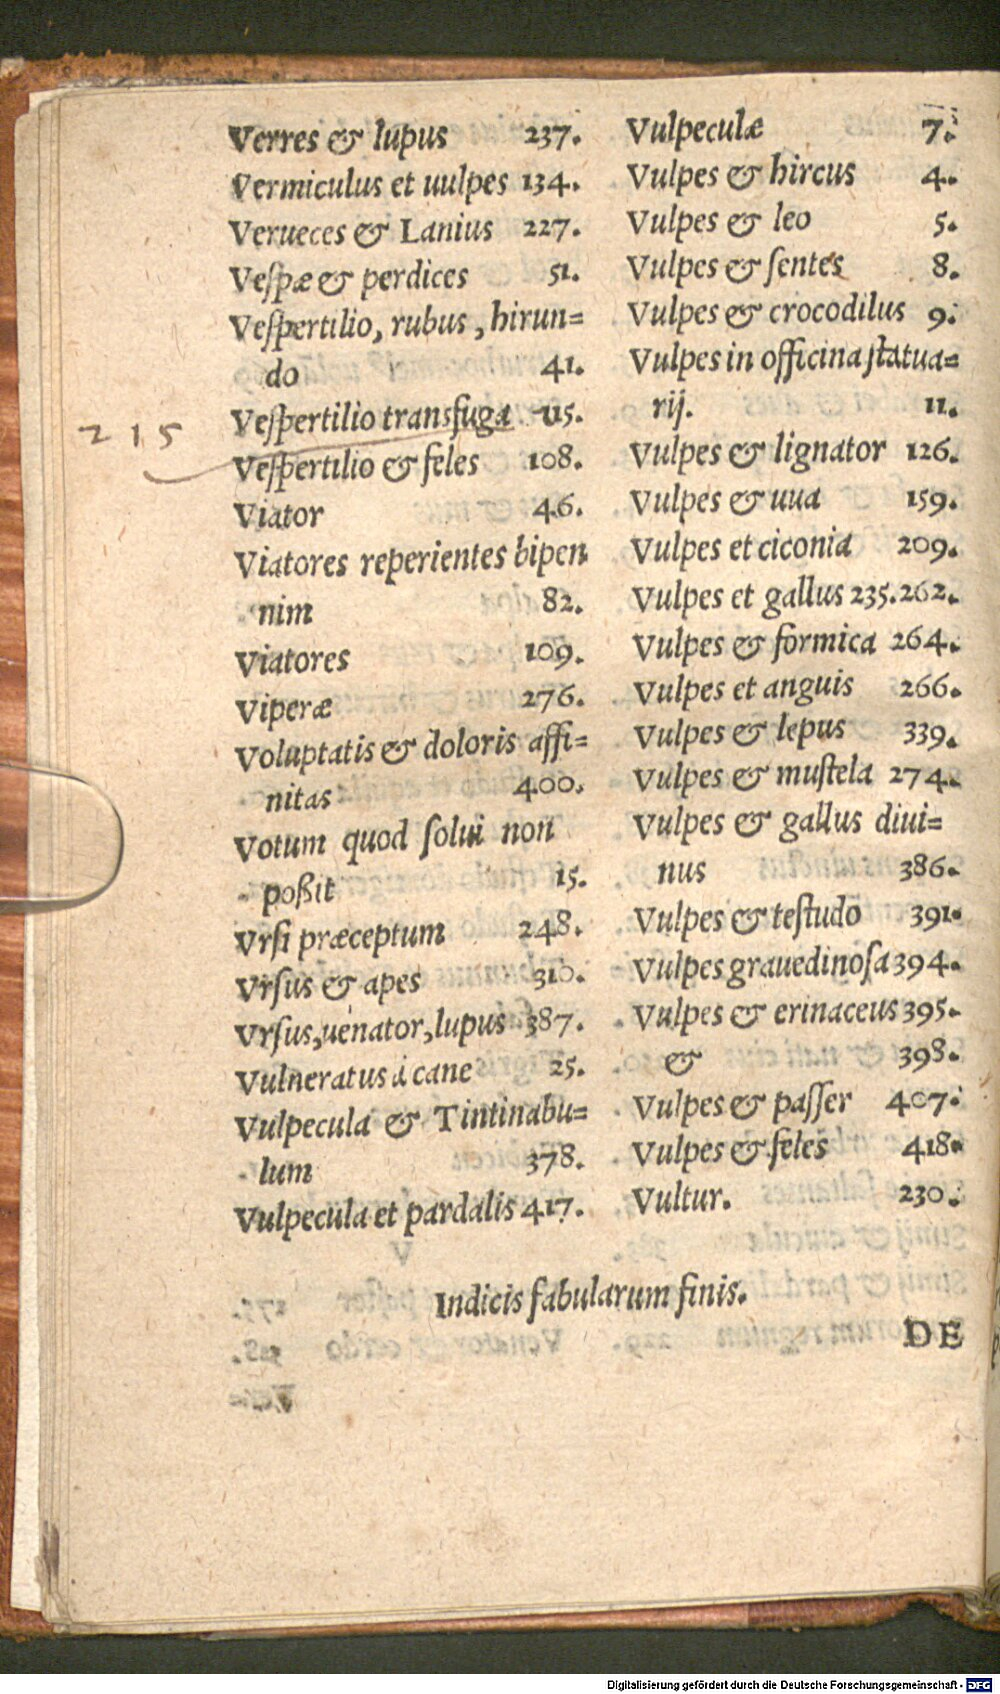 Verres & lupus 237.
Vermiculus et uulpes 134.
Verueces & Lanius 227.
Veſpæ & perdices 51.
Veſpertilio, rubus, hirun=
do 41.
Veſpertilio transfuga 115.
215
Veſpertilio & feles 108.
Viator 46.
Viatores reperientes bipen
nim 82.
Viatores 109.
Viperæ 276.
Voluptatis & doloris affi=
nitas 400.
Votum quod ſolui non
poßit 15.
Vrſi præceptum 248.
Vrſus & apes 310.
Vrſus, uenator, lupus 387.
Vulneratus à cane 25.
Vulpecula & Tintinabu=
lum 378.
Vulpecula et pardalis 417.
Vulpeculæ 7.
Vulpes & hircus 4.
Vulpes & leo 5.
Vulpes & ſentes 8.
Vulpes & crocodilus 9.
Vulpes in officina ſtatua=
rij. 11.
Vulpes & lignator 126.
Vulpes & uua 159.
Vulpes et ciconia 209.
Vulpes et gallus 235.262.
Vulpes & formica 264.
Vulpes et anguis 266.
Vulpes & lepus 339.
Vulpes & muſtela 274.
Vulpes & gallus diui=
nus 386.
Vulpes & teſtudo 391.
Vulpes grauedinoſa 394.
Vulpes & erinaceus 395.
& 398.
Vulpes & paſſer 407.
Vulpes & feles 418.
Vultur. 230.
Indicis fabularum finis.
DE
Digitalisierung gefördert durch die Deutsche Forschungsgemeinschaft - DFG